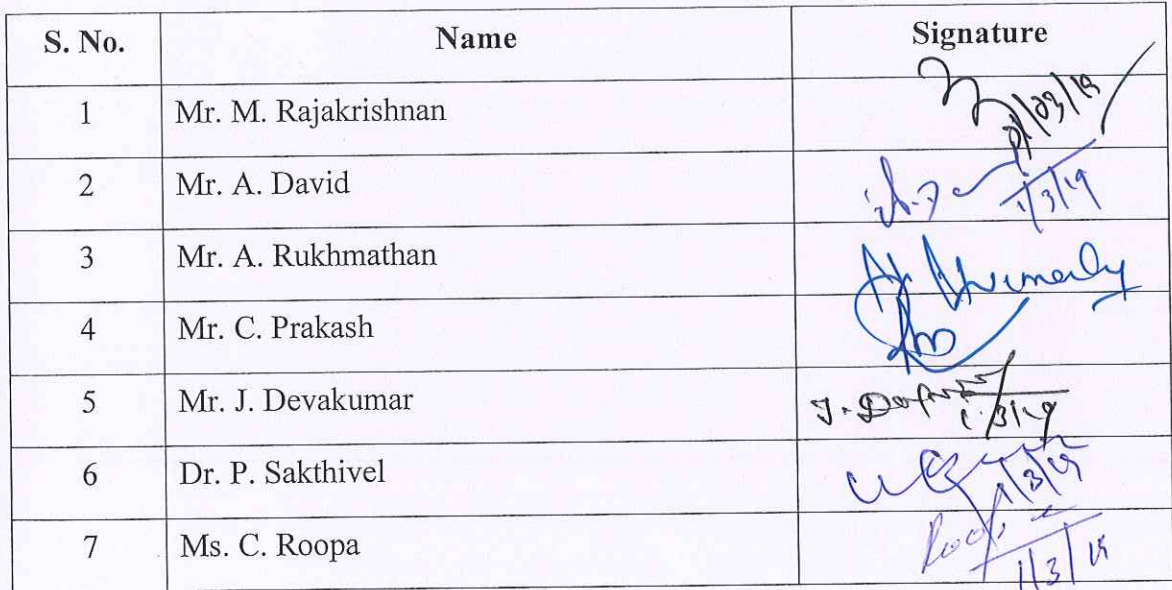 S. No. Name Signature
1 Mr. M. Rajakrishnan 01/03/19
2 Mr. A. David 1/3/19
3 Mr. A. Rukhmathan
4 Mr. C. Prakash
5 Mr. J. Devakumar 1/3/19
6 Dr. P. Sakthivel 1/3/19
7 Ms. C. Roopa Roopa 1/3/19